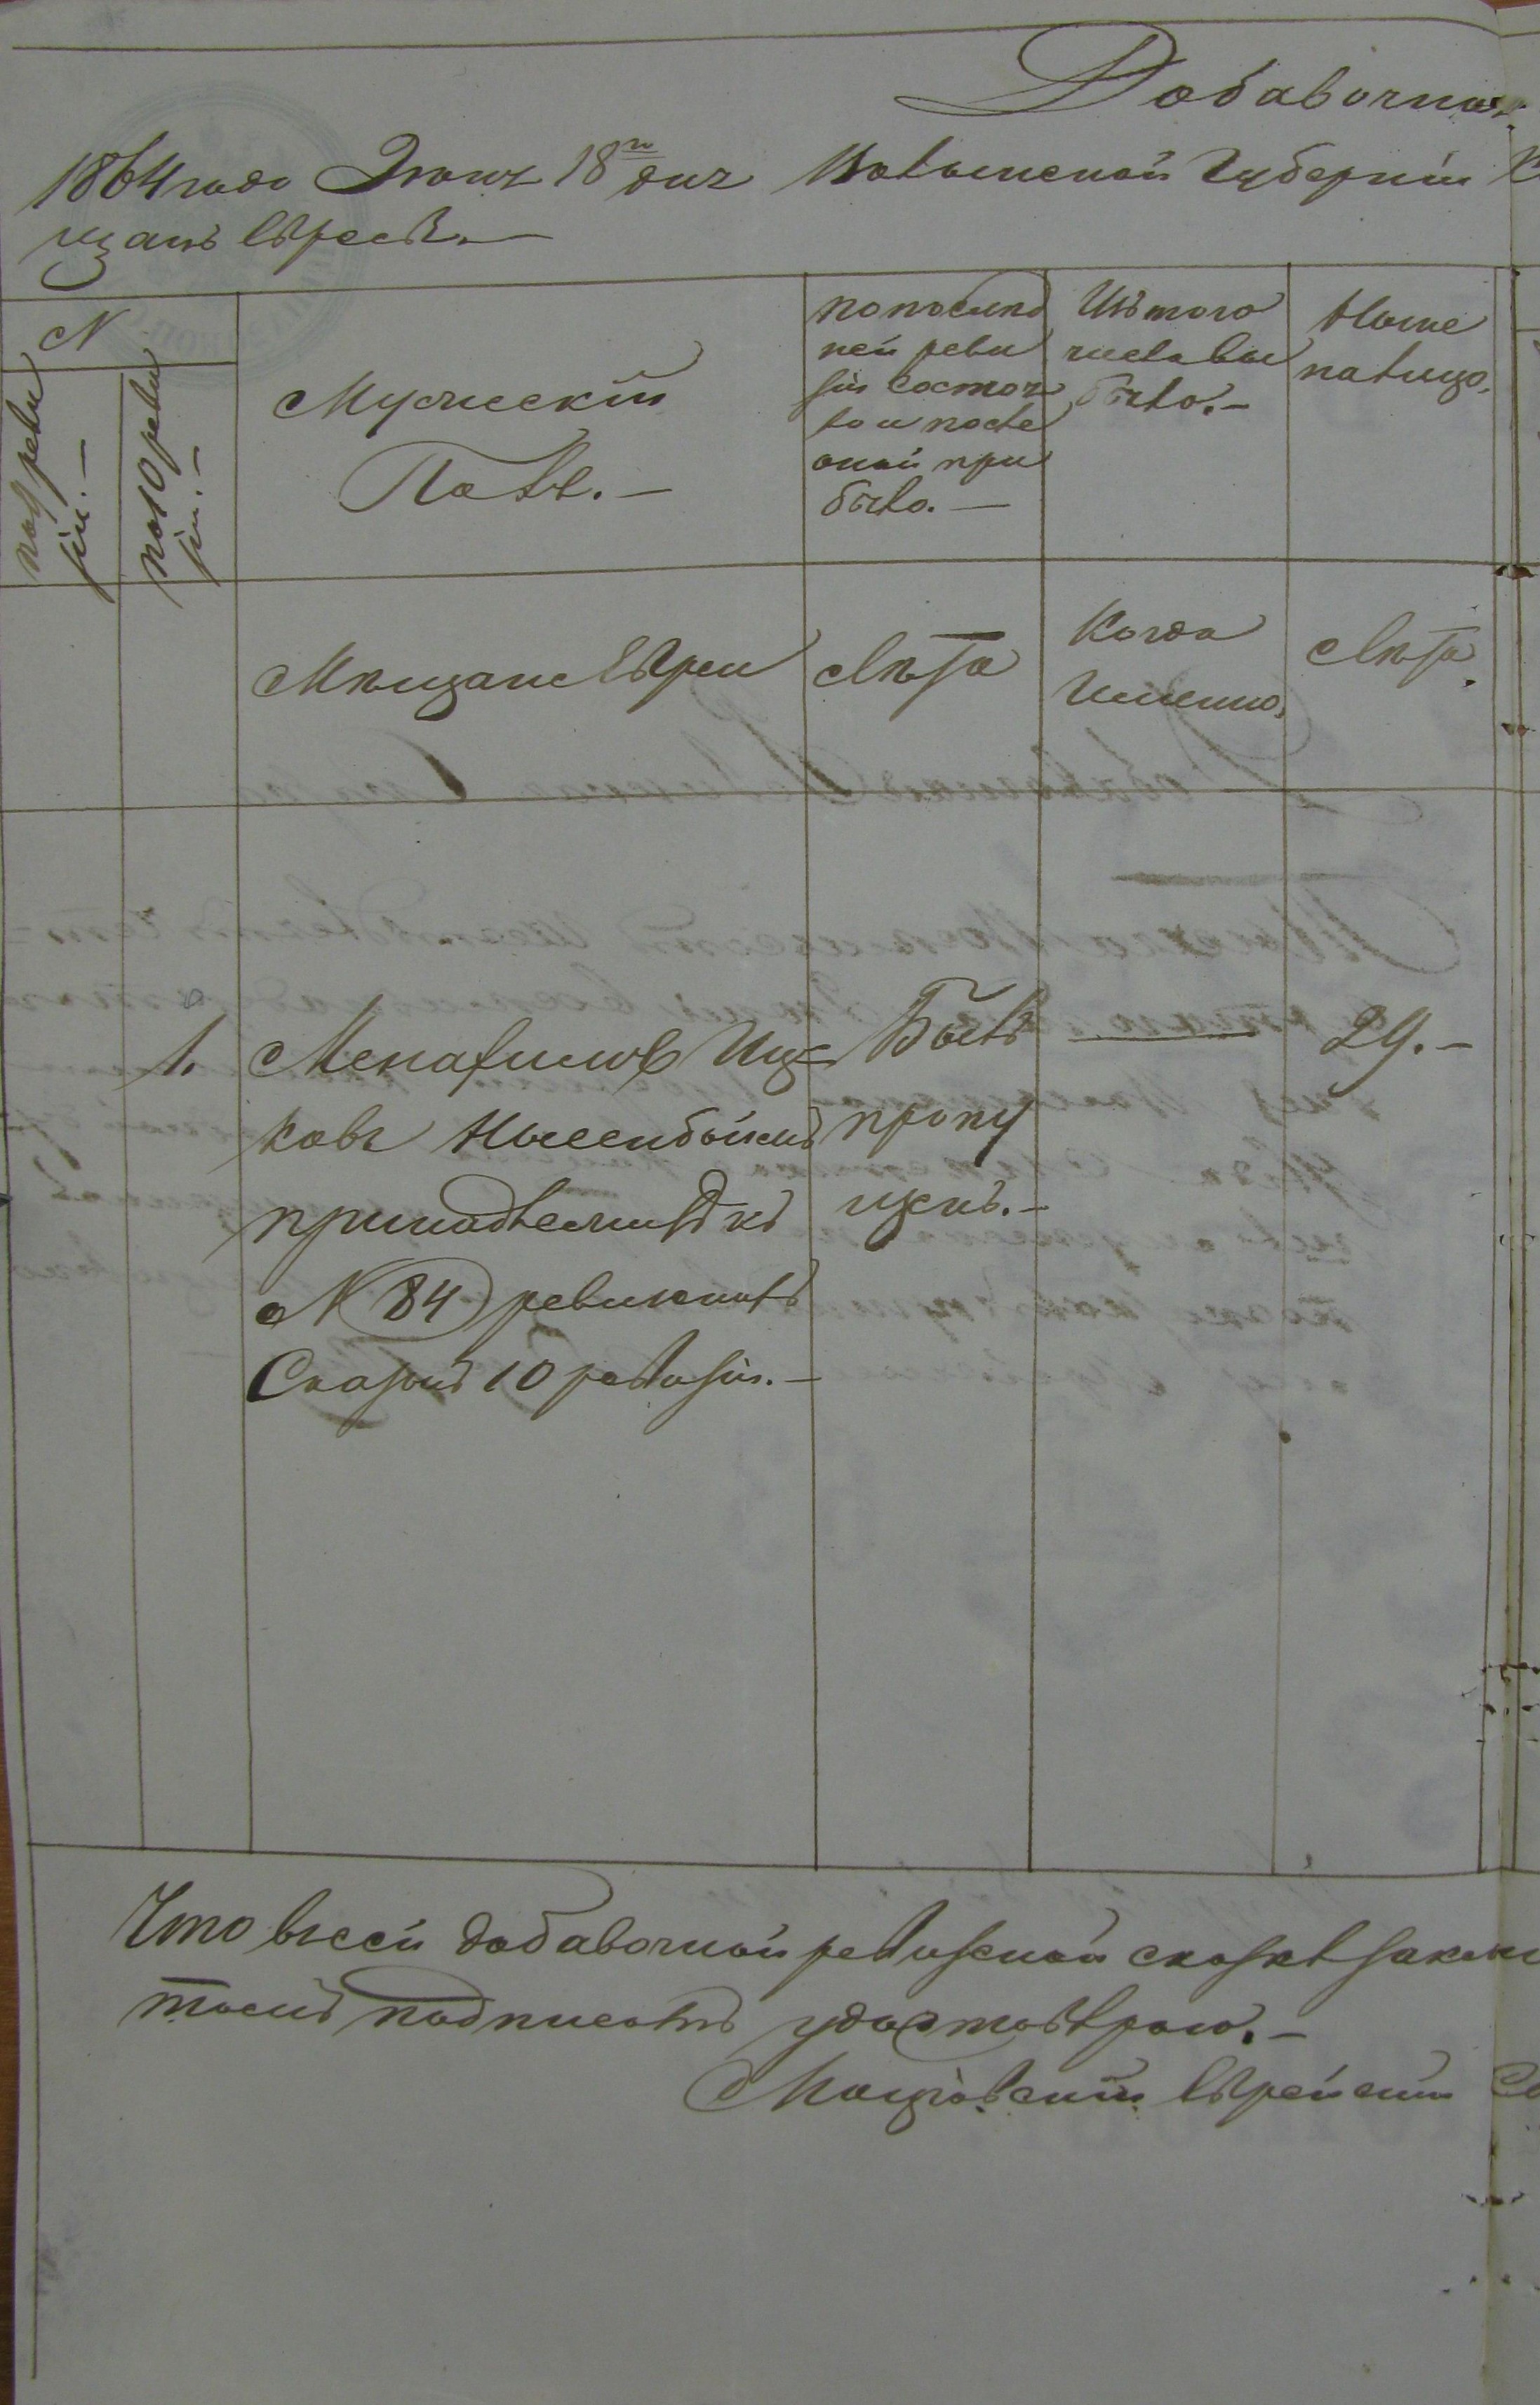 Добавочная
1864 года Июня 18го дня Волынской Губерніи
щанъ Евреевъ.—
N
по 9 реви
зіи.—
по 10 реви
зіи.—
Мужескій
Полъ.—
по послѣд
ней реви
зіи состоя
ло и после
оной при
было.—
Изъ того
числа вы
было.—
Ныне
налицо.
Мѣщане Евреи
Лѣта
Когда
Именно.
Лѣта.
1.
Менахимъ Иц=
ковъ
принадлежитъ къ
N 84 ревизкихъ
Сказокъ 10 ревизіи.—
Былъ
пропу
щенъ.—
29.—
Что в сей добавочной ревизской сказкѣ
томъ подписомъ удостовѣряю.—
Еврейскій